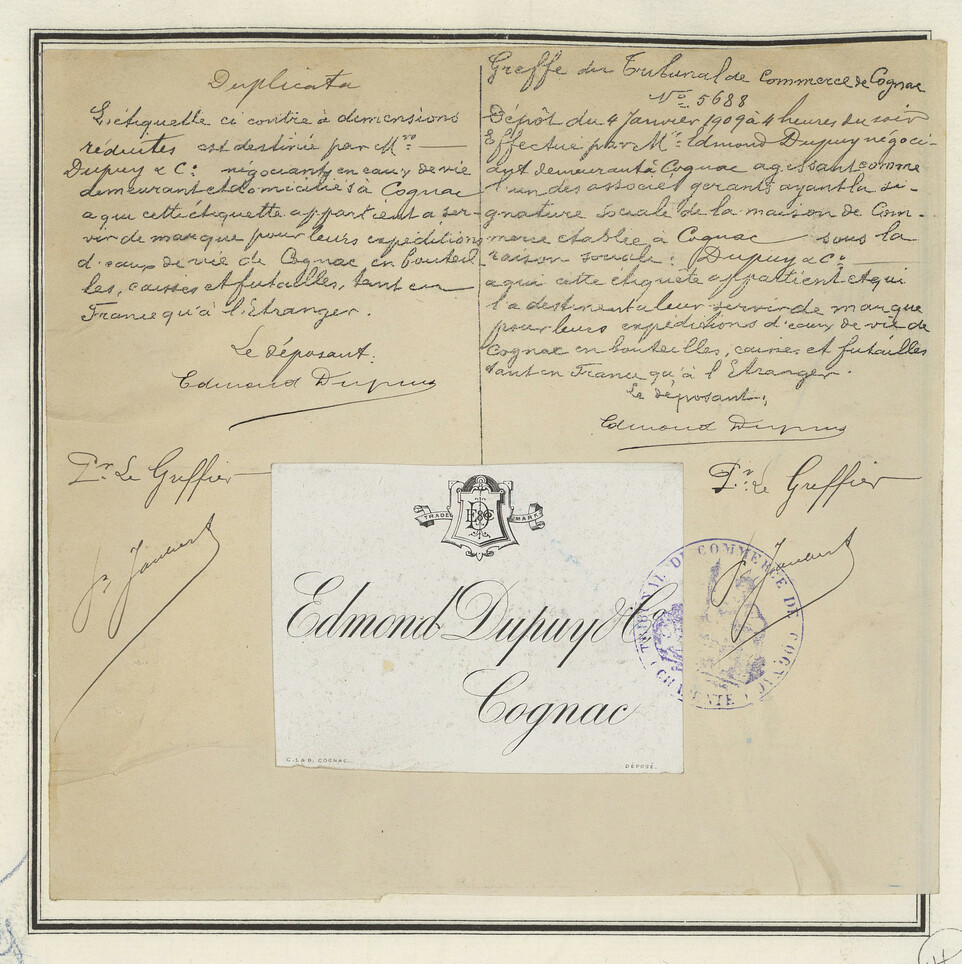 Duplicata
L'étiquette ci contre à dimensions
réduites est destinée par Mrs
Dupuy & Co négociants en eaux de vie
demeurant et domiciliés à Cognac
a qui cette étiquette appartient a ser-
vir de marque pour leurs expéditions
d'eaux de vie de Cognac en bouteil-
les, caisses et futailles, tant en
France qu'à l'Etranger.
Le déposant:
Edmond Dupuy
Pr Le Greffier
Greffe du Tribunal de Commerce de Cognac
No 5688
Dépôt du 4 Janvier 1909 à 4 heures du soir
Effectué par Mr Edmond Dupuy négoci-
ant demeurant à Cognac agissant comme
l'un des associés gérants ayant la si-
gnature sociale de la maison de Com-
merce établie à Cognac sous la
raison sociale: Dupuy & Co
a qui cette étiquette appartient et qui
l'a destinent a leur servir de marque
pour leurs expéditions d'eaux de vie de
Cognac en bouteilles, caisses et futailles
tant en France qu'à l'Etranger.
Le déposant:
Edmond Dupuy
Pr Le Greffier
TRADE MARK
Edmond Dupuy & Co
Cognac
C. L & B. COGNAC.
DÉPOSÉ.
TRIBUNAL DE COMMERCE DE COGNAC
(CHARENTE)